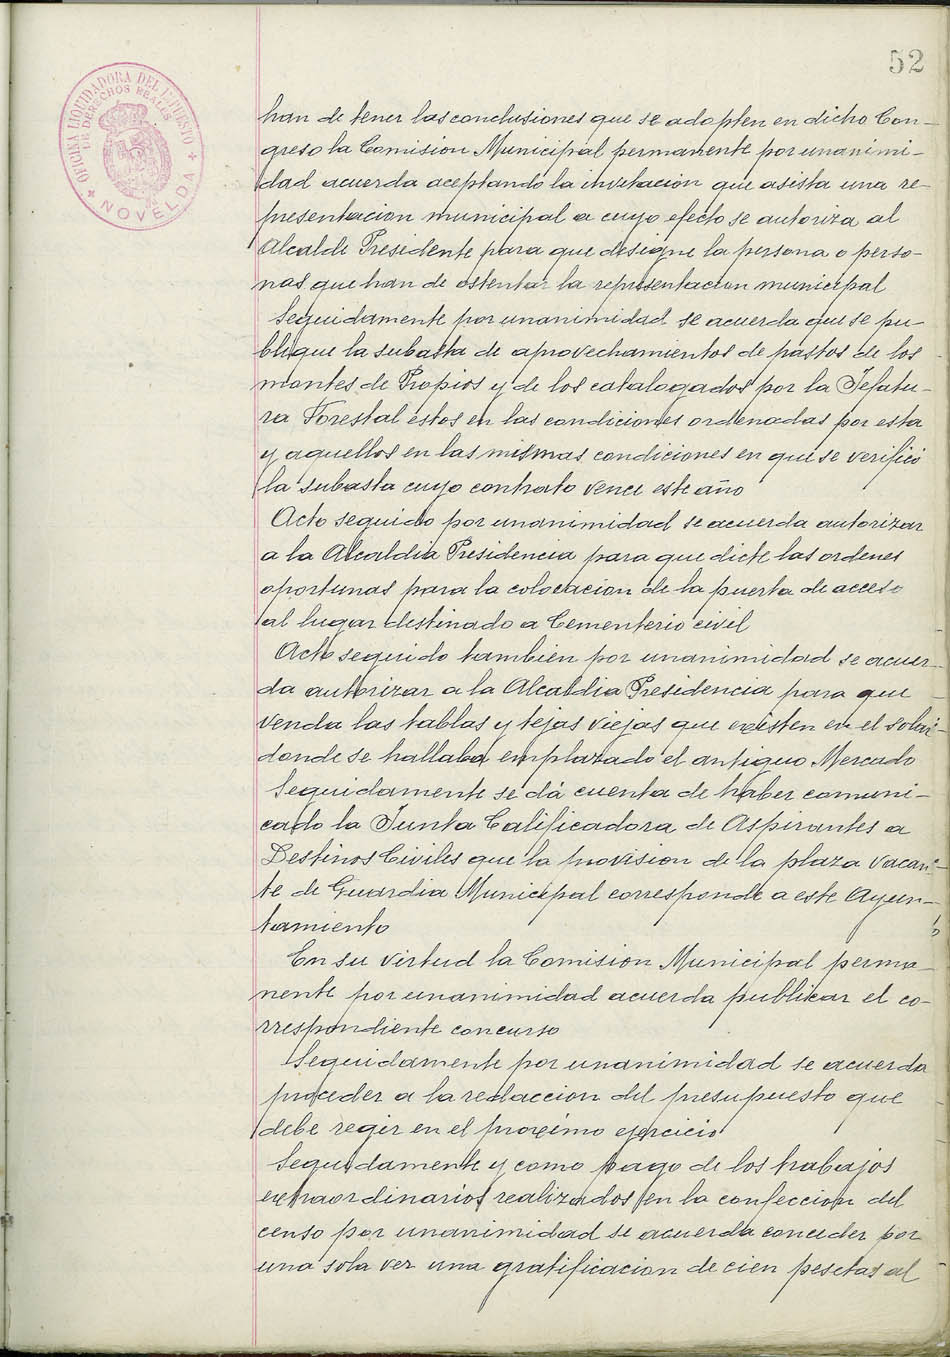 52
OFICINA LIQUIDADORA DEL IMPUESTO
DE DERECHOS REALES
NOVELDA
han de tener las conclusiones que se adopten en dicho Con-
greso la Comision Municipal permanente por unanimi-
dad acuerda aceptando la invitacion que asista una re-
presentacion municipal a cuyo efecto se autoriza al
Alcalde Presidente para que designe la persona o perso-
nas que han de ostentar la representacion municipal
Seguidamente por unanimidad se acuerda que se pu-
blique la subasta de aprovechamientos de pastos de los
montes de Propios y de los catalogados por la Jefatu-
ra Forestal estos en las condiciones ordenadas por esta
y aquellos en las mismas condiciones en que se verificó
la subasta cuyo contrato vence este año
Acto seguido por unanimidad se acuerda autorizar
a la Alcaldia Presidencia para que dicte las ordenes
oportunas para la colocacion de la puerta de acceso
al lugar destinado a Cementerio civil
Acto seguido tambien por unanimidad se acuer-
da autorizar a la Alcaldia Presidencia para que
venda las tablas y tejas viejas que existen en el solar
donde se hallaba emplazado el antiguo Mercado
Seguidamente se dá cuenta de haber comuni-
cado la Junta Calificadora de Aspirantes a
Destinos Civiles que la provision de la plaza vacan-
te de Guardia Municipal corresponde a este Ayun-
tamiento
En su virtud la Comision Municipal perma-
nente por unanimidad acuerda publicar el co-
rrespondiente concurso
Seguidamente por unanimidad se acuerda
proceder a la redaccion del presupuesto que
debe regir en el proximo ejercicio
Seguidamente y como pago de los trabajos
extraordinarios realizados en la confeccion del
censo por unanimidad se acuerda conceder por
una sola vez una gratificacion de cien pesetas al